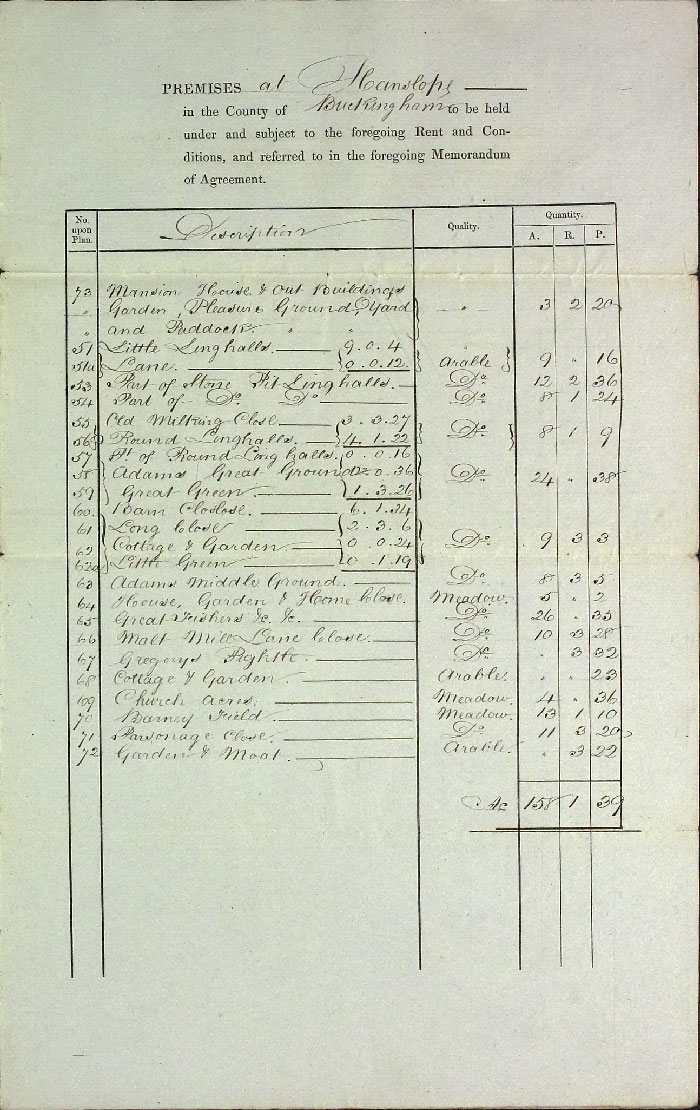 PREMISES at Hanslope
in the County of Buckingham to be held
under and subject to the foregoing Rent and Con-
ditions, and referred to in the foregoing Memorandum
of Agreement.
No. upon Plan. Description Quality. Quantity.
A. R. P.
73 Mansion House & Out Buildings
" Garden, Pleasure Ground, Yard - " - 3 2 20
" and Paddock " "
51 Little Linghalls. 9.0.4
51a Lane. 0.0.12. Arable 9 " 16
53 Part of Stone Pit Linghalls. Do. 12 2 36
54 Part of Do. Do. Do. 8 1 24
55 Old Milking Close 3.3.27
56 Round Linghalls. 4.1.22 Do. 8 1 9
57 Pt. of Round Linghalls. 0.0.16
58 Adams Great Ground 22.0.36 Do. 24 " 38
59 Great Green. 1.3.26
60. Barn Closlose. 6.1.34
61 Long Close 2.3.6
62 Cottage & Garden 0.0.24 Do. 9 3 3
62a Little Green 0.1.19
63 Adams Middle Ground. Do. 8 3 5
64 House, Garden & Home Close. Meadow. 5 " 2
65 Great Fishers &c. &c. Do. 26 " 35
66 Malt Mill Lane Close. Do. 10 3 28
67 Gregorys Pightle. Do. " 3 32
68 Cottage & Garden. Arable. " " 23
69 Church Acres. Meadow. 4 " 36
70 Barney Field. Meadow. 13 1 10
71 Parsonage Close. Do. 11 3 20
72 Garden & Moat. Arable. " 3 22
Ac 158 1 39